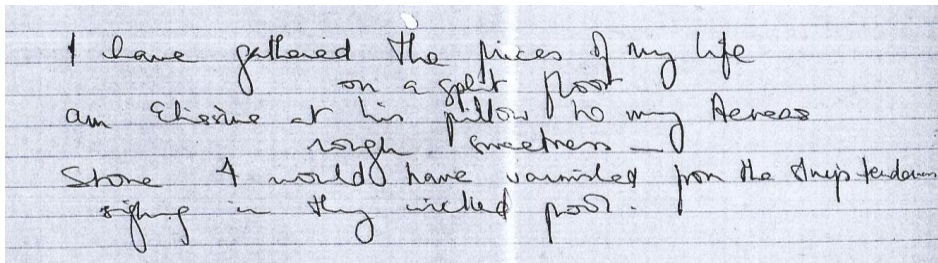 I have gathered the pieces of my life
on a split floor
am Elissine at his pillow to my Aeneas
rough sweetness —
Stone I would have vanished from the
sighing in thy wicked